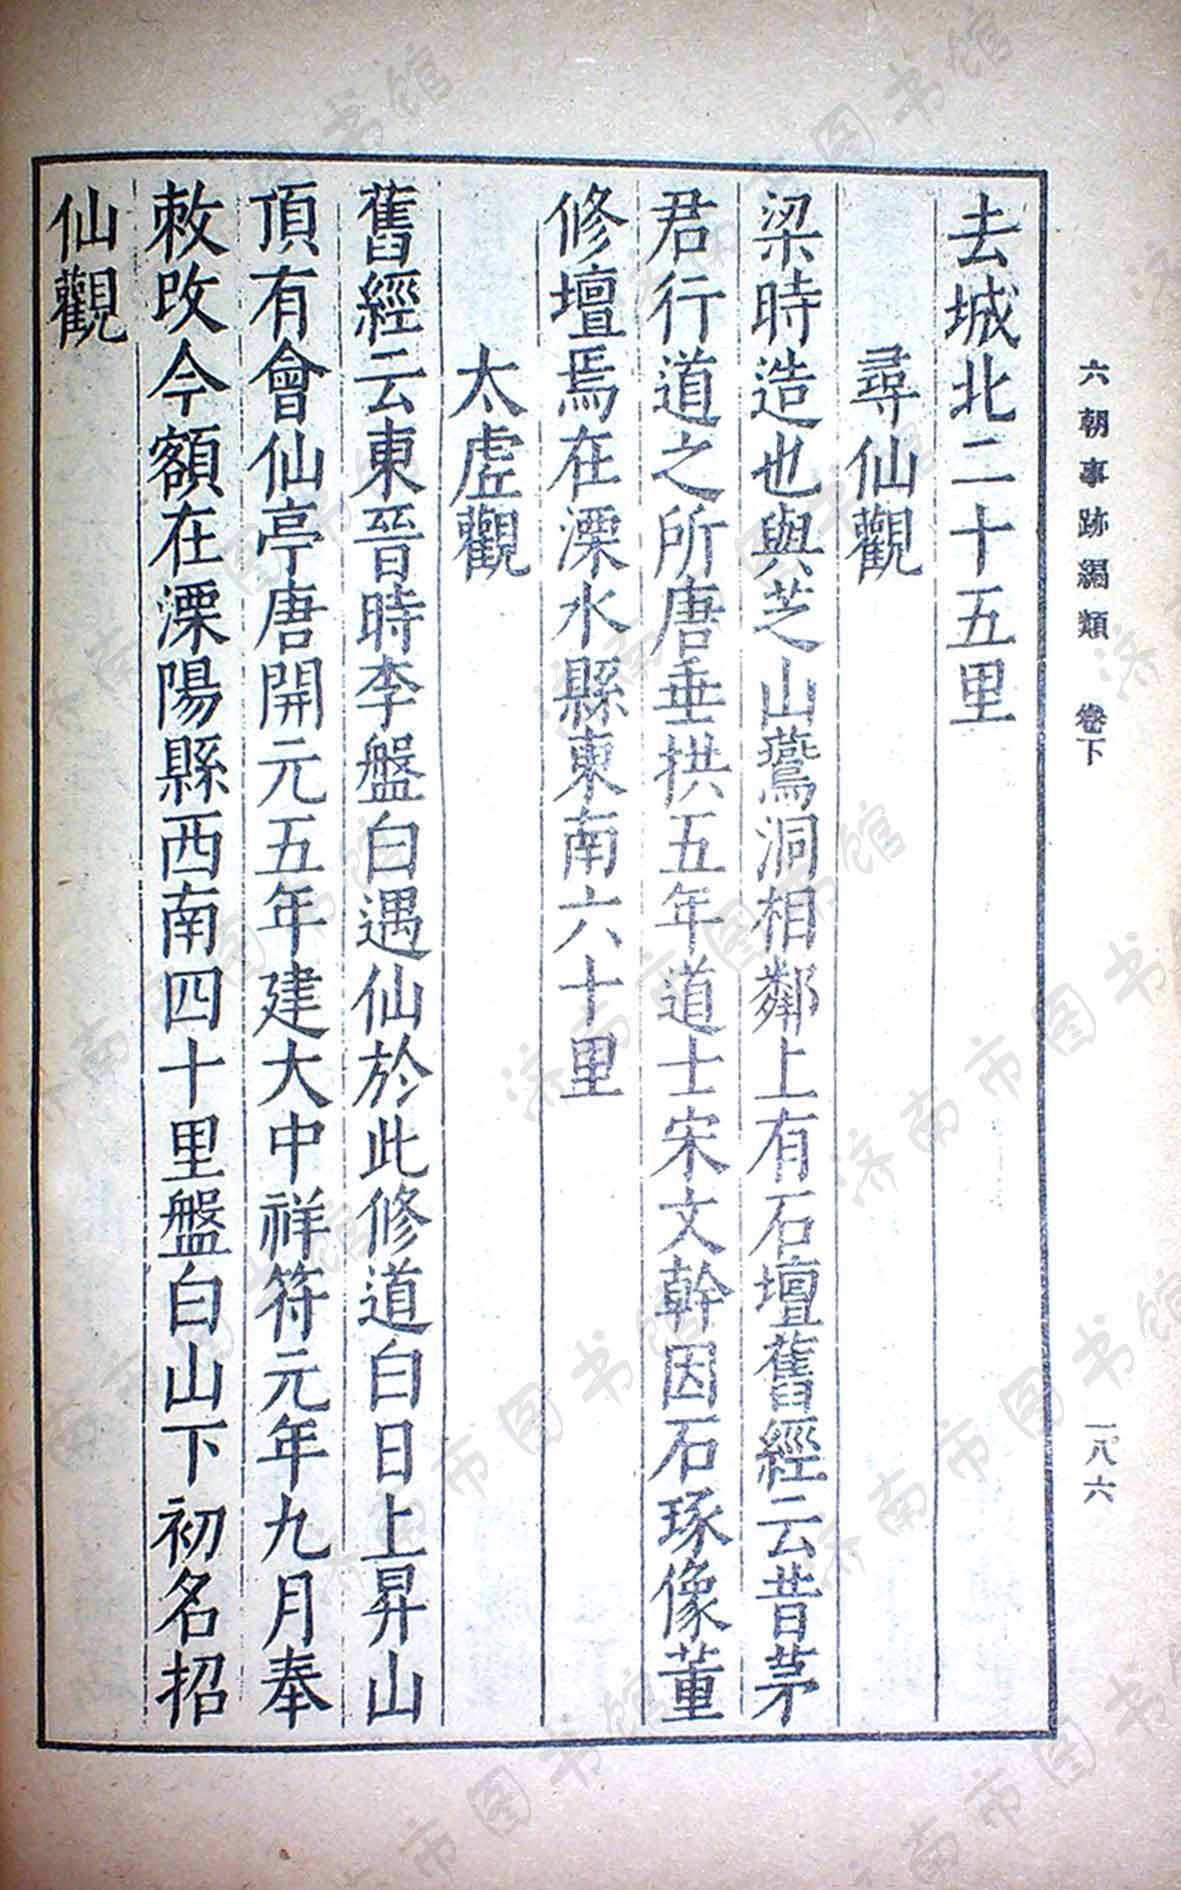 六朝事跡編類 卷下
一八六
去城北二十五里
尋仙觀
梁時造也與芝山鷰洞相鄰上有石壇舊經云昔茅
君行道之所唐垂拱五年道士宋文幹因石琢像董
修壇焉在溧水縣東南六十里
太虛觀
舊經云東晉時李盤白遇仙於此修道白日上昇山
頂有會仙亭唐開元五年建大中祥符元年九月奉
敕改今額在溧陽縣西南四十里盤白山下初名招
仙觀
济南市图书馆